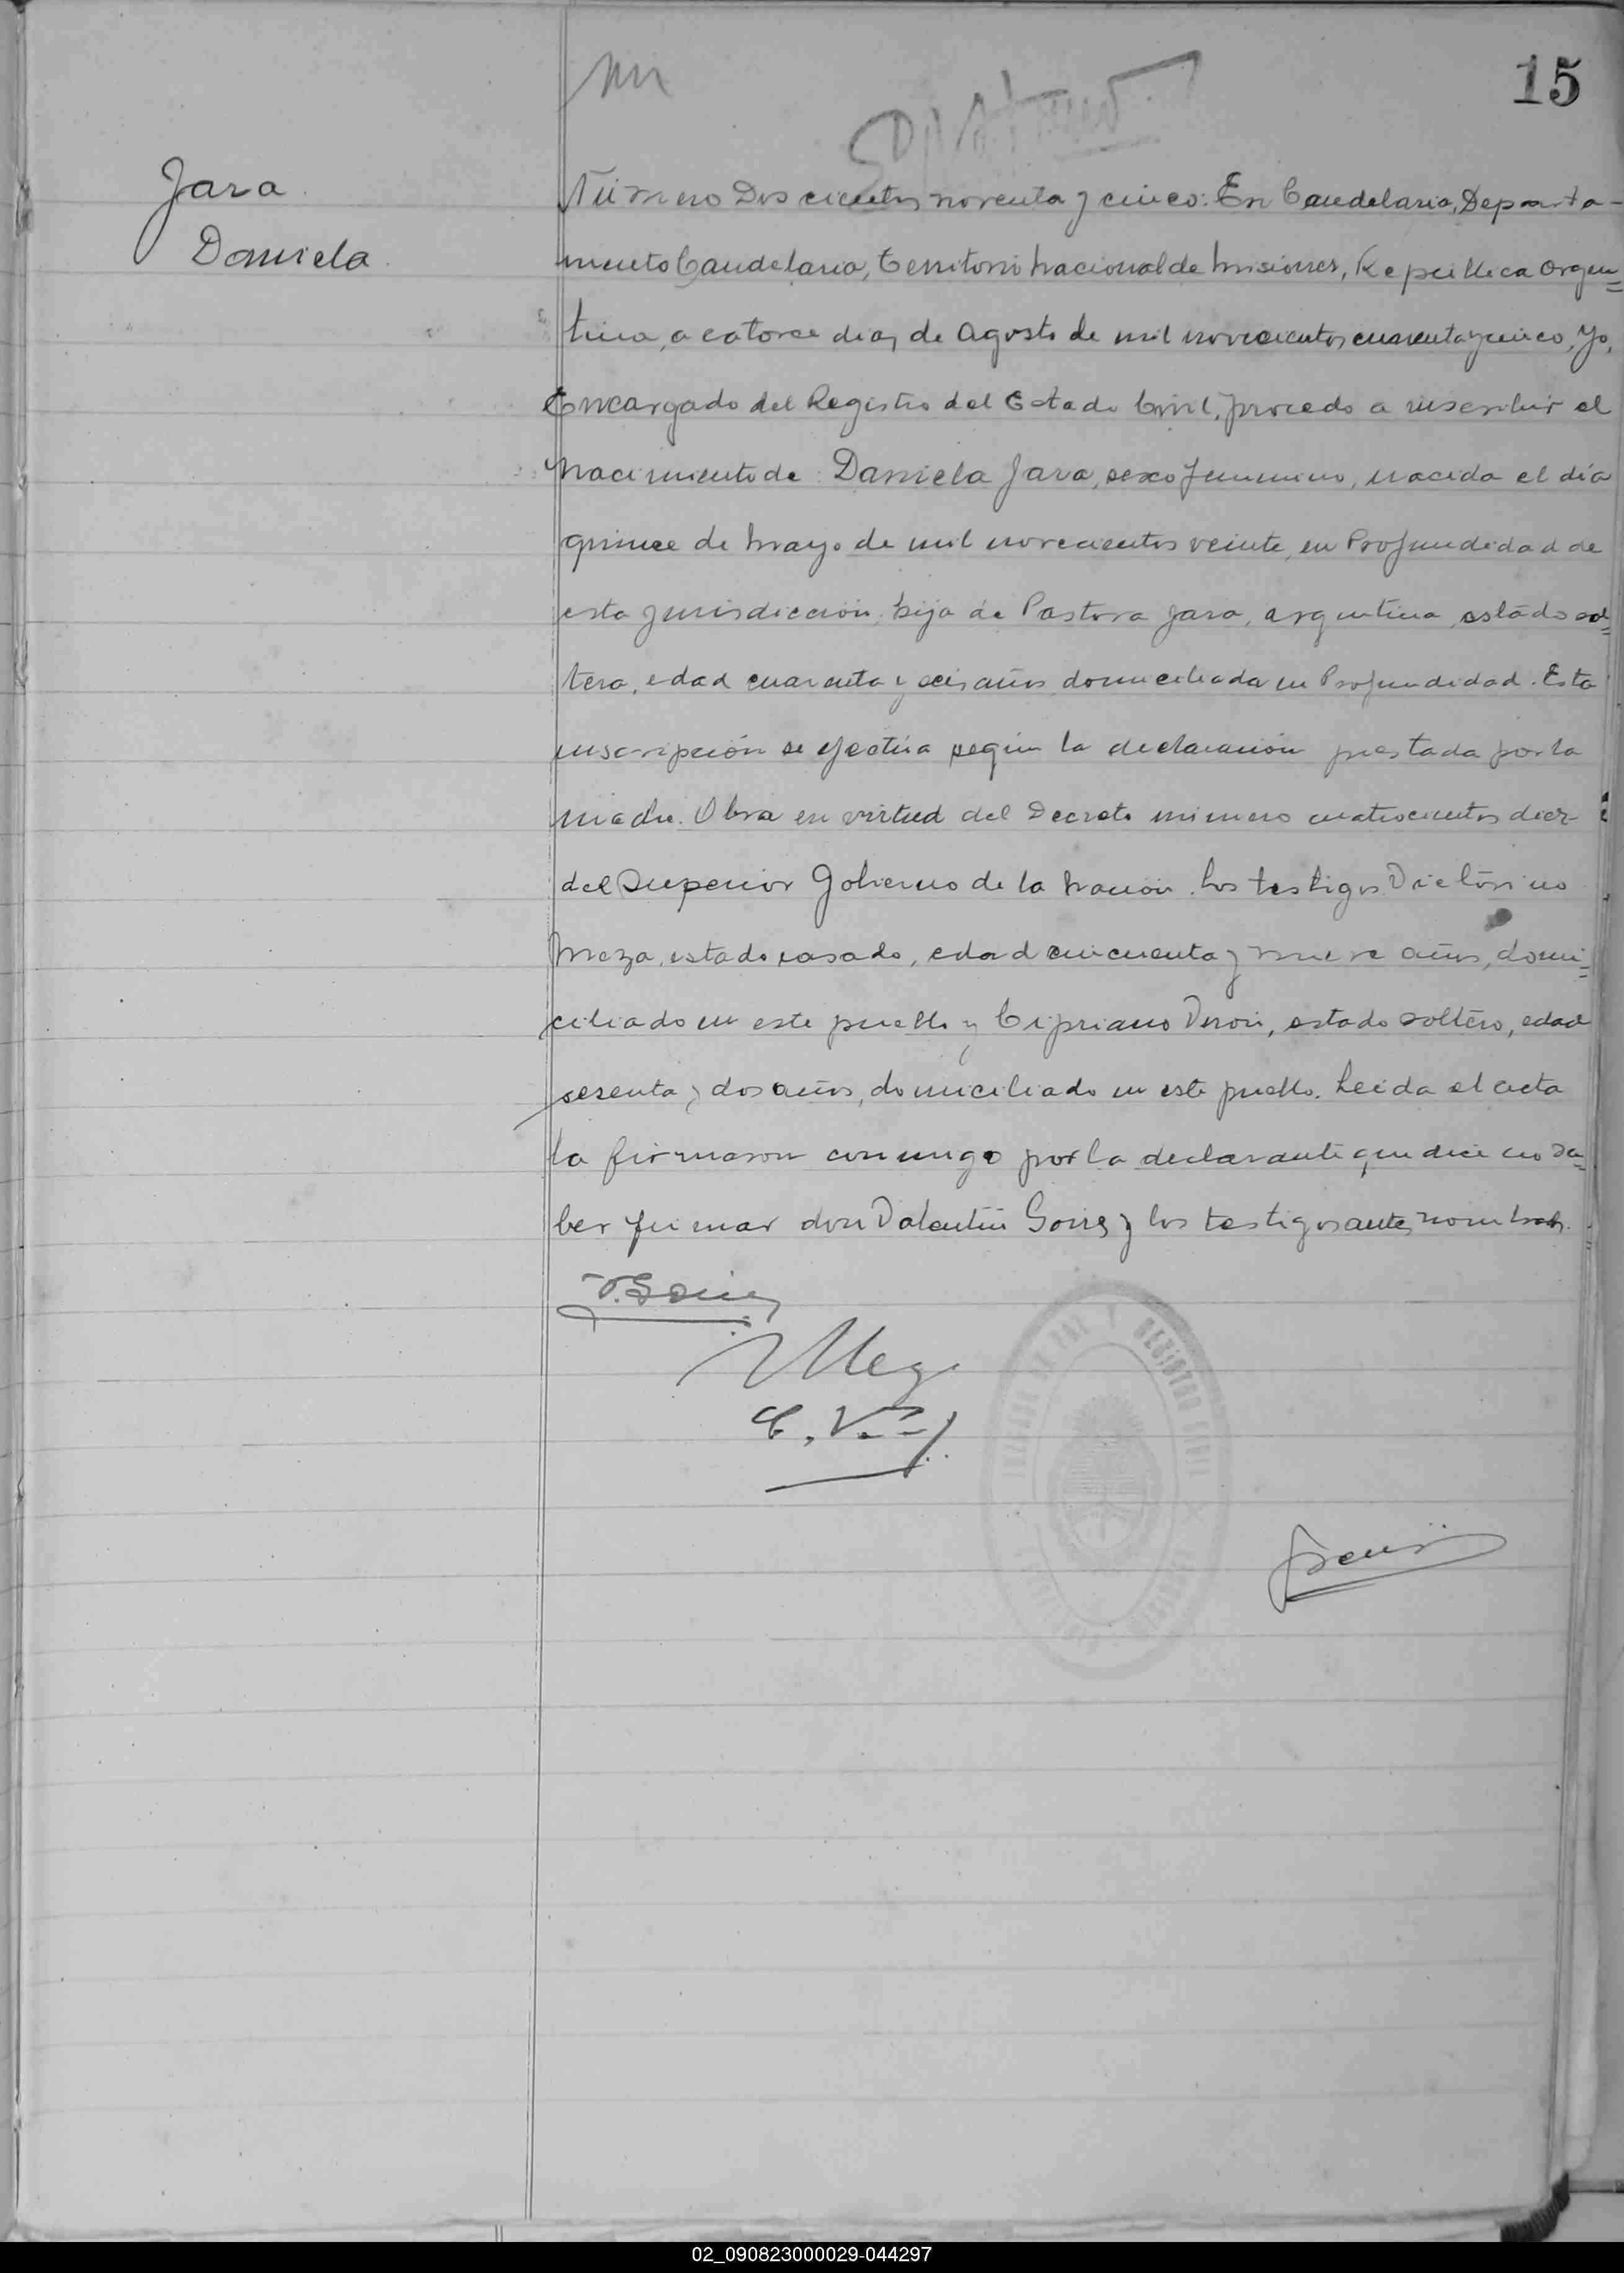 15
Jara
Daniela
Número Doscientos noventa y cinco: En Candelaria, Departa-
mento Candelaria, Territorio Nacional de Misiones, República Argen=
tina, a catorce dias de Agosto de mil novecientos cuarenta y cinco, Yo,
Encargado del Registro del Estado Civil, procedo a inscribir el
Nacimiento de: Daniela Jara, sexo femenino, nacida el día
quince de Mayo de mil novecientos veinte, en Profundidad de
esta jurisdicción, hija de Pastora Jara, argentina, estado sol=
tera, edad cuarenta y seis años, domiciliada en Profundidad. Esta
inscripción se efectúa según la declaración prestada por la
madre. Obra en virtud del Decreto número cuatrocientos diez
del Superior Gobierno de la Nación. Los testigos Victorino
Meza, estado casado, edad cincuenta y nueve años, domi=
ciliado en este pueblo y Cipriano Verón, estado soltero, edad
sesenta y dos años, domiciliado en este pueblo. Leida el acta
la firmaron conmigo por la declarante que dice no sa=
ber firmar don Valentín Goires y los testigos antes nombrados.
C. V.
REGISTRO CIVIL
02_090823000029-044297